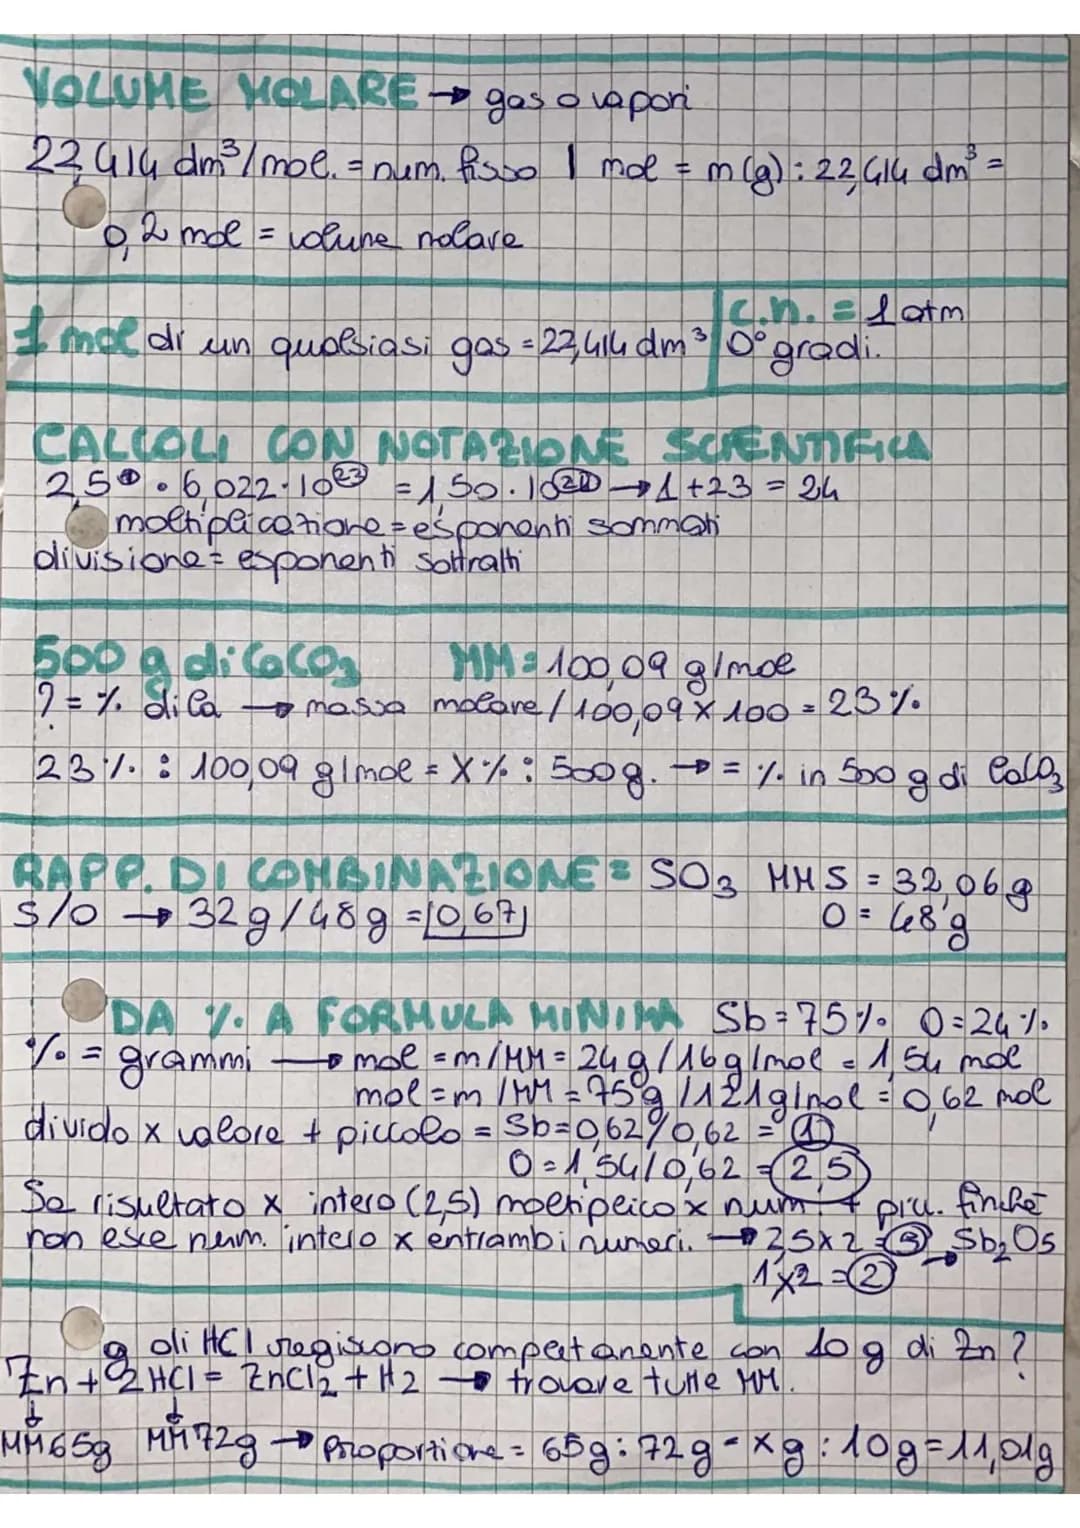 VOLUME MOLARE → gas o vapori
22,414 dm³/mol. = num. fisso | mol = m(g) : 22,414 dm³ =
0,2 mol = volume molare
1 mol di un qualsiasi gas = 22,414 dm³
C.N. = 1 atm
0° gradi.
CALCOLI CON NOTAZIONE SCIENTIFICA
2,5① · 6,022·10²³ = 1,50·10²⁴ → 1+23 = 24
moltiplicazione = esponenti sommati
divisione = esponenti sottratti
500 g di CaCO₃ MM = 100,09 g/mol
? = % di Ca → massa molare / 100,09 x 100 = 23%
23% : 100,09 g/mol = X% : 500g. → = % in 500 g di CaCO₃
RAPP. DI COMBINAZIONE = SO₃ MM S = 32,06 g
S/O → 32g/48g = 0,67 O = 48 g
DA % A FORMULA MINIMA Sb = 75% O = 24%
% = grammi → mol = m/MM = 24g/16g/mol = 1,54 mol
mol = m/MM = 75g/121g/mol = 0,62 mol
divido x valore + piccolo = Sb = 0,62/0,62 = ①
O = 1,54/0,62 = 2,5
Se risultato x intero (2,5) moltiplico x num. + picc. finché
non esce num. intero x entrambi numeri. → 2,5x2 = ⑤ → Sb₂O₅
1x2 = ②
g di HCl regiscono completanente con 10 g di Zn?
Zn + 2HCl = ZnCl₂ + H2 → trovare tutte MM.
MM65g MM72g → proportione = 65g : 72g = xg : 10g = 11,01g